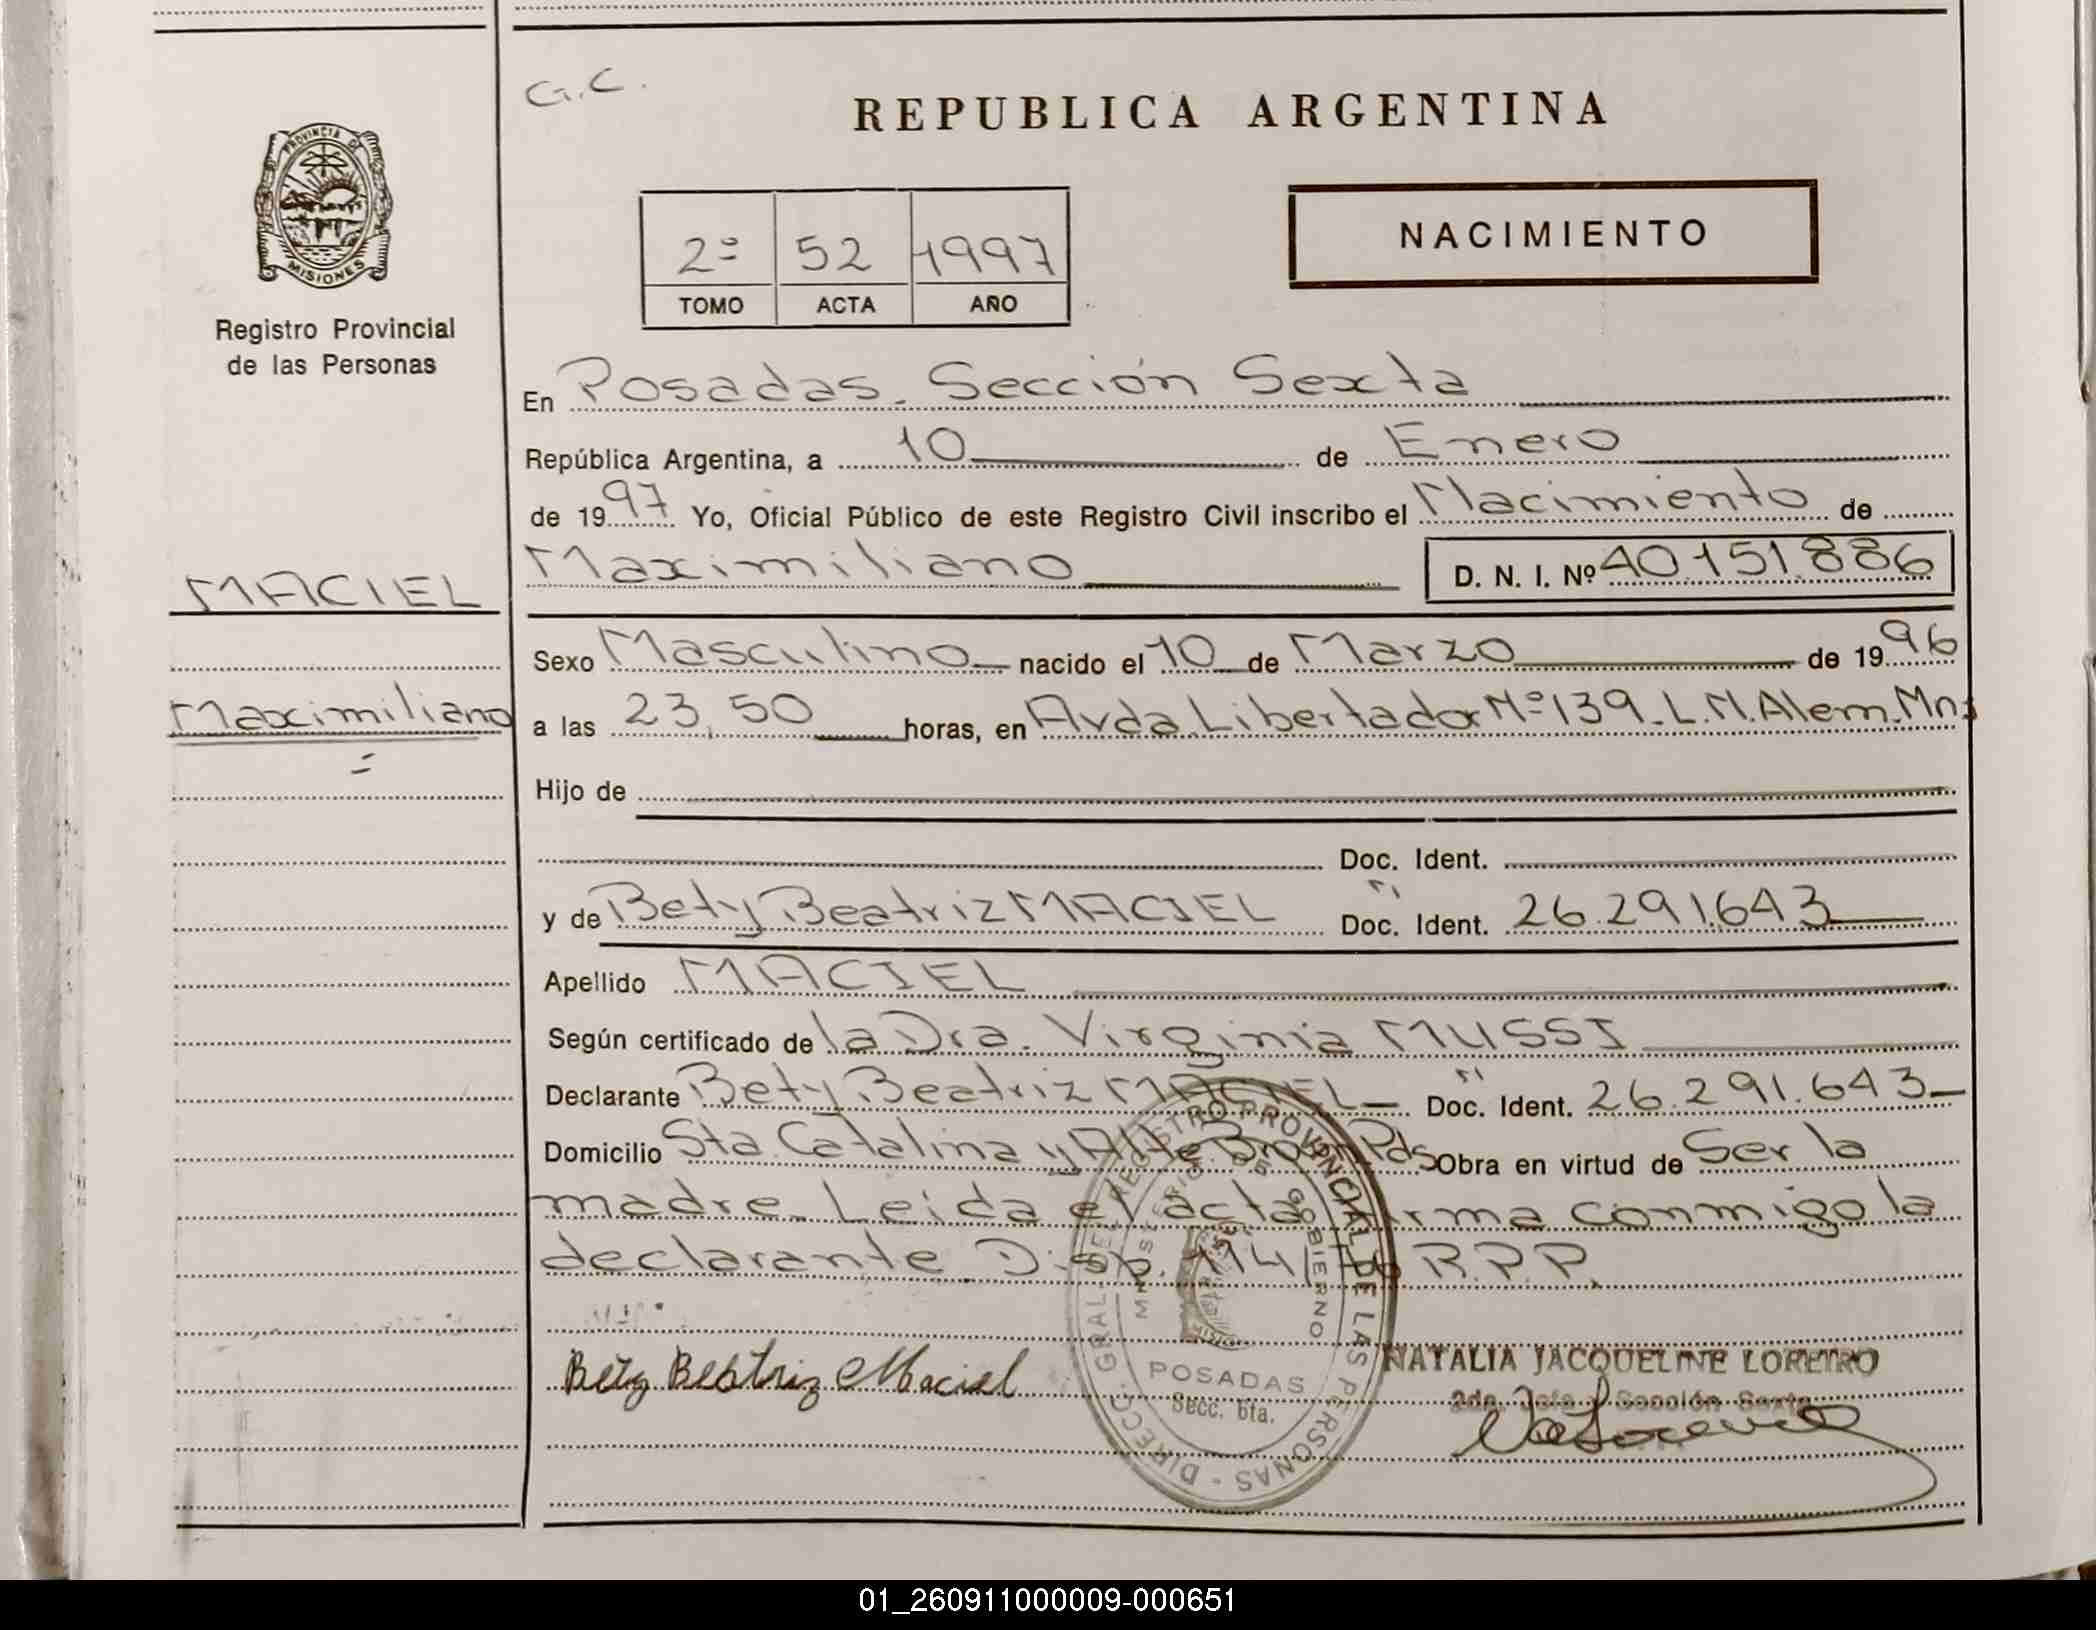 G.C.
REPUBLICA ARGENTINA
PROVINCIA DE
MISIONES
2º 52 1997
TOMO ACTA AÑO
NACIMIENTO
Registro Provincial
de las Personas
En Posadas. Sección Sexta
República Argentina, a 10 de Enero
de 1997 Yo, Oficial Público de este Registro Civil inscribo el Nacimiento de
MACIEL
Maximiliano D. N. I. Nº 40.151.886
Sexo Masculino nacido el 10 de Marzo de 1996
Maximiliano
a las 23,50 horas, en Avda. Libertador Nº 139. L.N.Alem. Mns
Hijo de
Doc. Ident.
y de Bety Beatriz MACIEL Doc. Ident. 26.291.643
Apellido MACIEL
Según certificado de la Dra. Virginia MUSSI
Declarante Bety Beatriz MACIEL Doc. Ident. 26.291.643
Domicilio Sta. Catalina y Alte Brown Pds Obra en virtud de Ser la
madre. Leida el acta firma conmigo la
declarante. Disp. 114/ R.P.P.
DIRECC. GRAL. DEL REGISTRO PROVINCIAL DE LAS PERSONAS
MINISTERIO DE GOBIERNO
POSADAS
Secc. 6ta.
Bety Beatriz Maciel
NATALIA JACQUELINE LOREIRO
2da. Jefa Sección Sexta
01_260911000009-000651